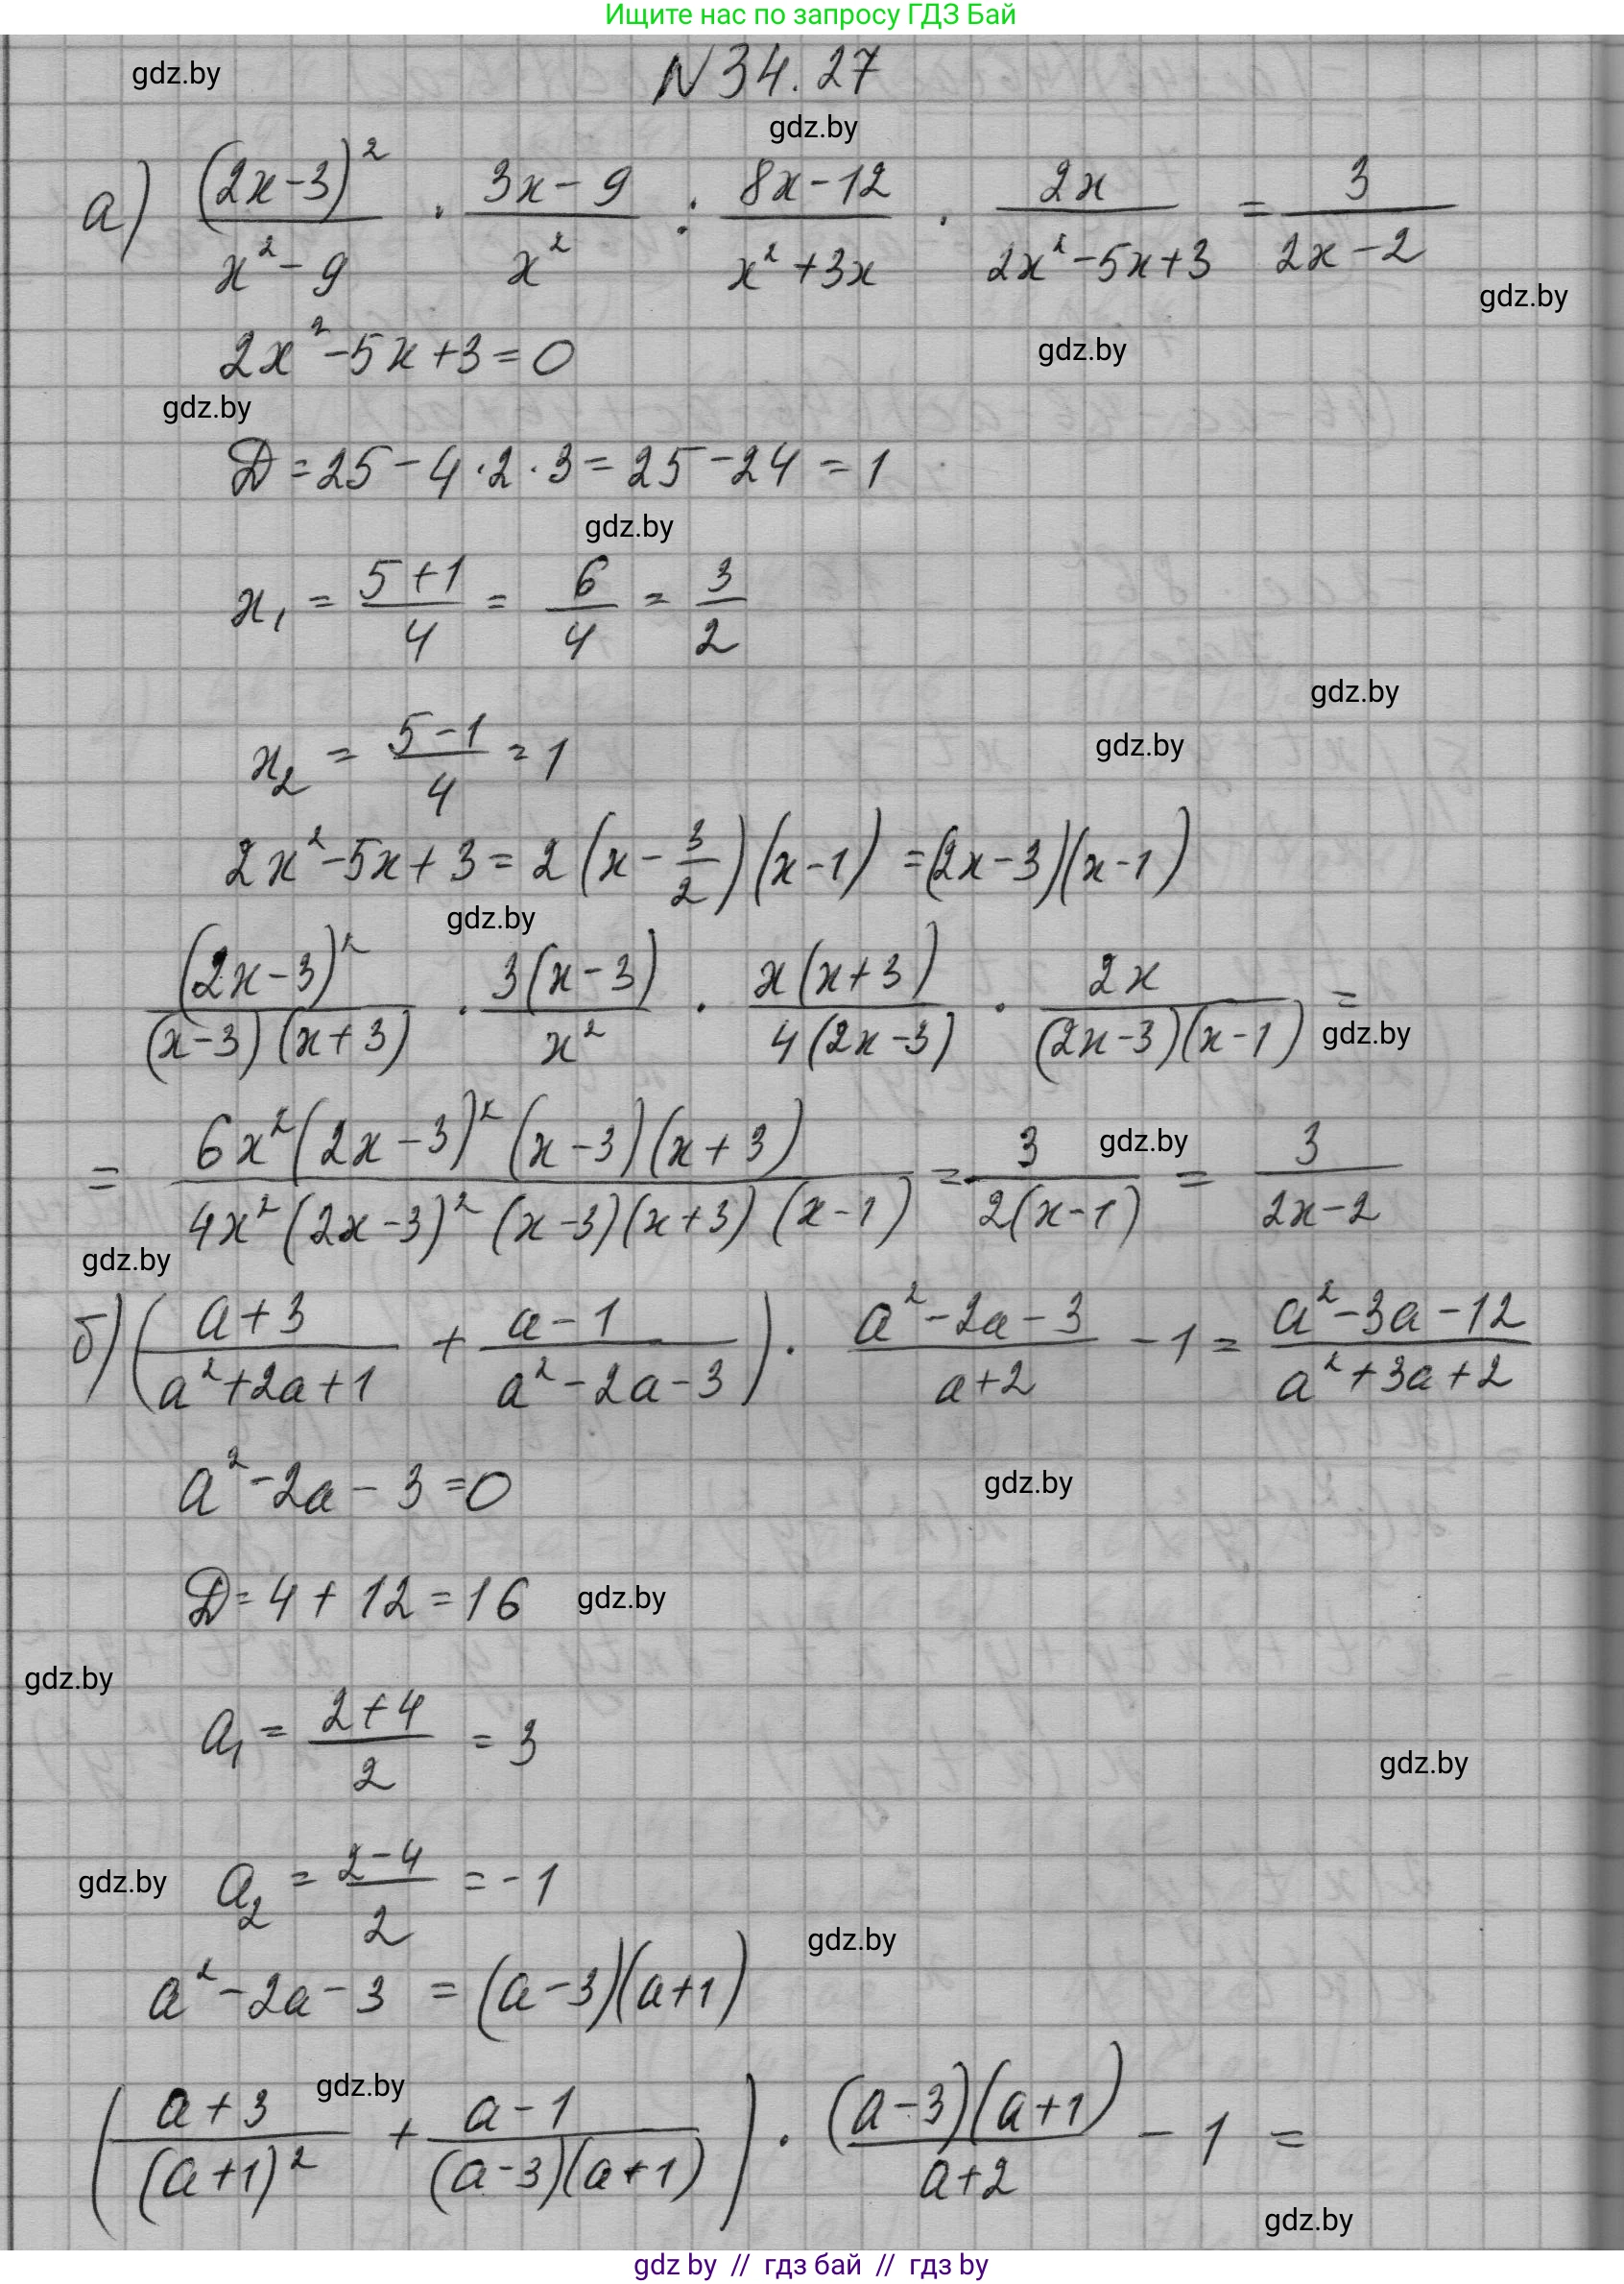 Ищите нас по запросу ГДЗ Бай
gdz.by
N 34.27
gdz.by
а) (2x-3)²/(x²-9) · (3x-9)/x² : (8x-12)/(x²+3x) · 2x/(2x²-5x+3) = 3/(2x-2)
gdz.by
2x²-5x+3=0
gdz.by
gdz.by
D=25-4·2·3=25-24=1
gdz.by
x₁ = (5+1)/4 = 6/4 = 3/2
gdz.by
x₂ = (5-1)/4 = 1
gdz.by
2x²-5x+3=2(x-3/2)(x-1)=(2x-3)(x-1)
gdz.by
(2x-3)²/((x-3)(x+3)) · 3(x-3)/x² · x(x+3)/(4(2x-3)) · 2x/((2x-3)(x-1)) =
gdz.by
= 6x²(2x-3)²(x-3)(x+3)/(4x²(2x-3)²(x-3)(x+3)(x-1)) = 3/(2(x-1)) = 3/(2x-2)
gdz.by
gdz.by
б) ((a+3)/(a²+2a+1) + (a-1)/(a²-2a-3)) · (a²-2a-3)/(a+2) - 1 = (a²-3a-12)/(a²+3a+2)
a²-2a-3=0
gdz.by
D=4+12=16
gdz.by
gdz.by
a₁ = (2+4)/2 = 3
gdz.by
gdz.by
a₂ = (2-4)/2 = -1
gdz.by
a²-2a-3 = (a-3)(a+1)
gdz.by
((a+3)/(a+1)² + (a-1)/((a-3)(a+1))) · (a-3)(a+1)/(a+2) - 1 =
gdz.by
gdz by // гдз бай // гдз by